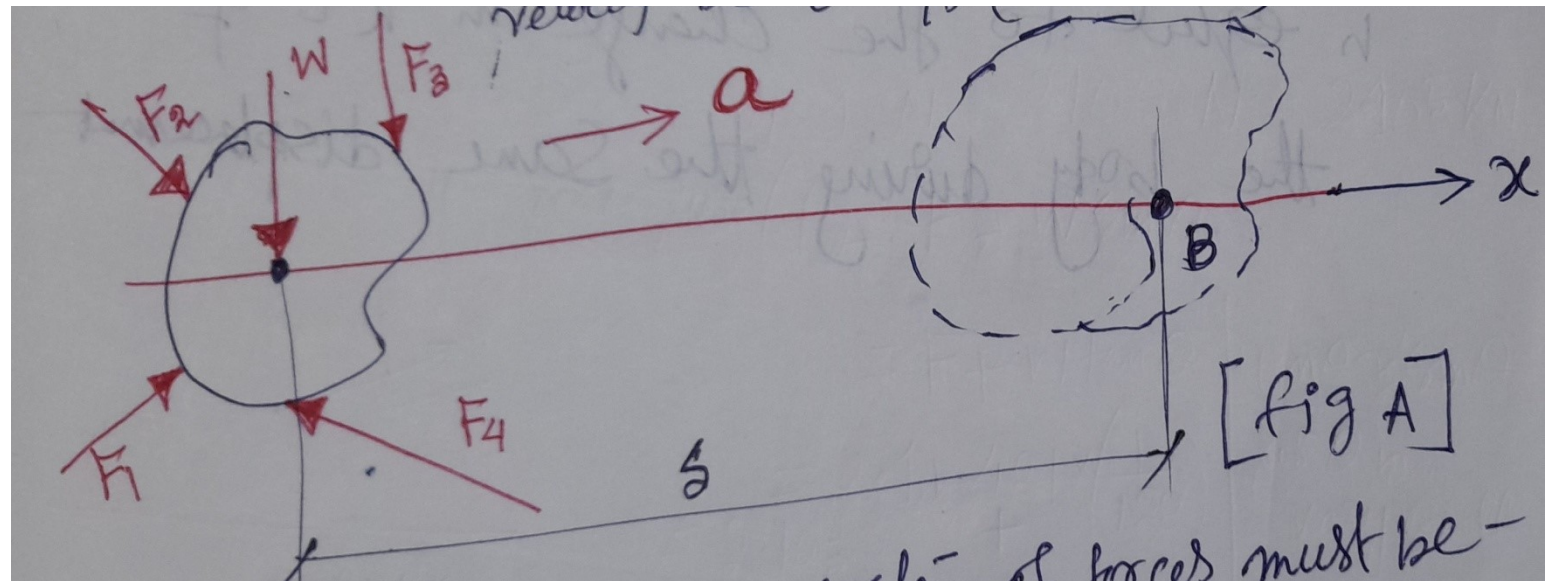 W
F3
F2
a
x
B
F1
F4
S
[fig A]
of forces must be-